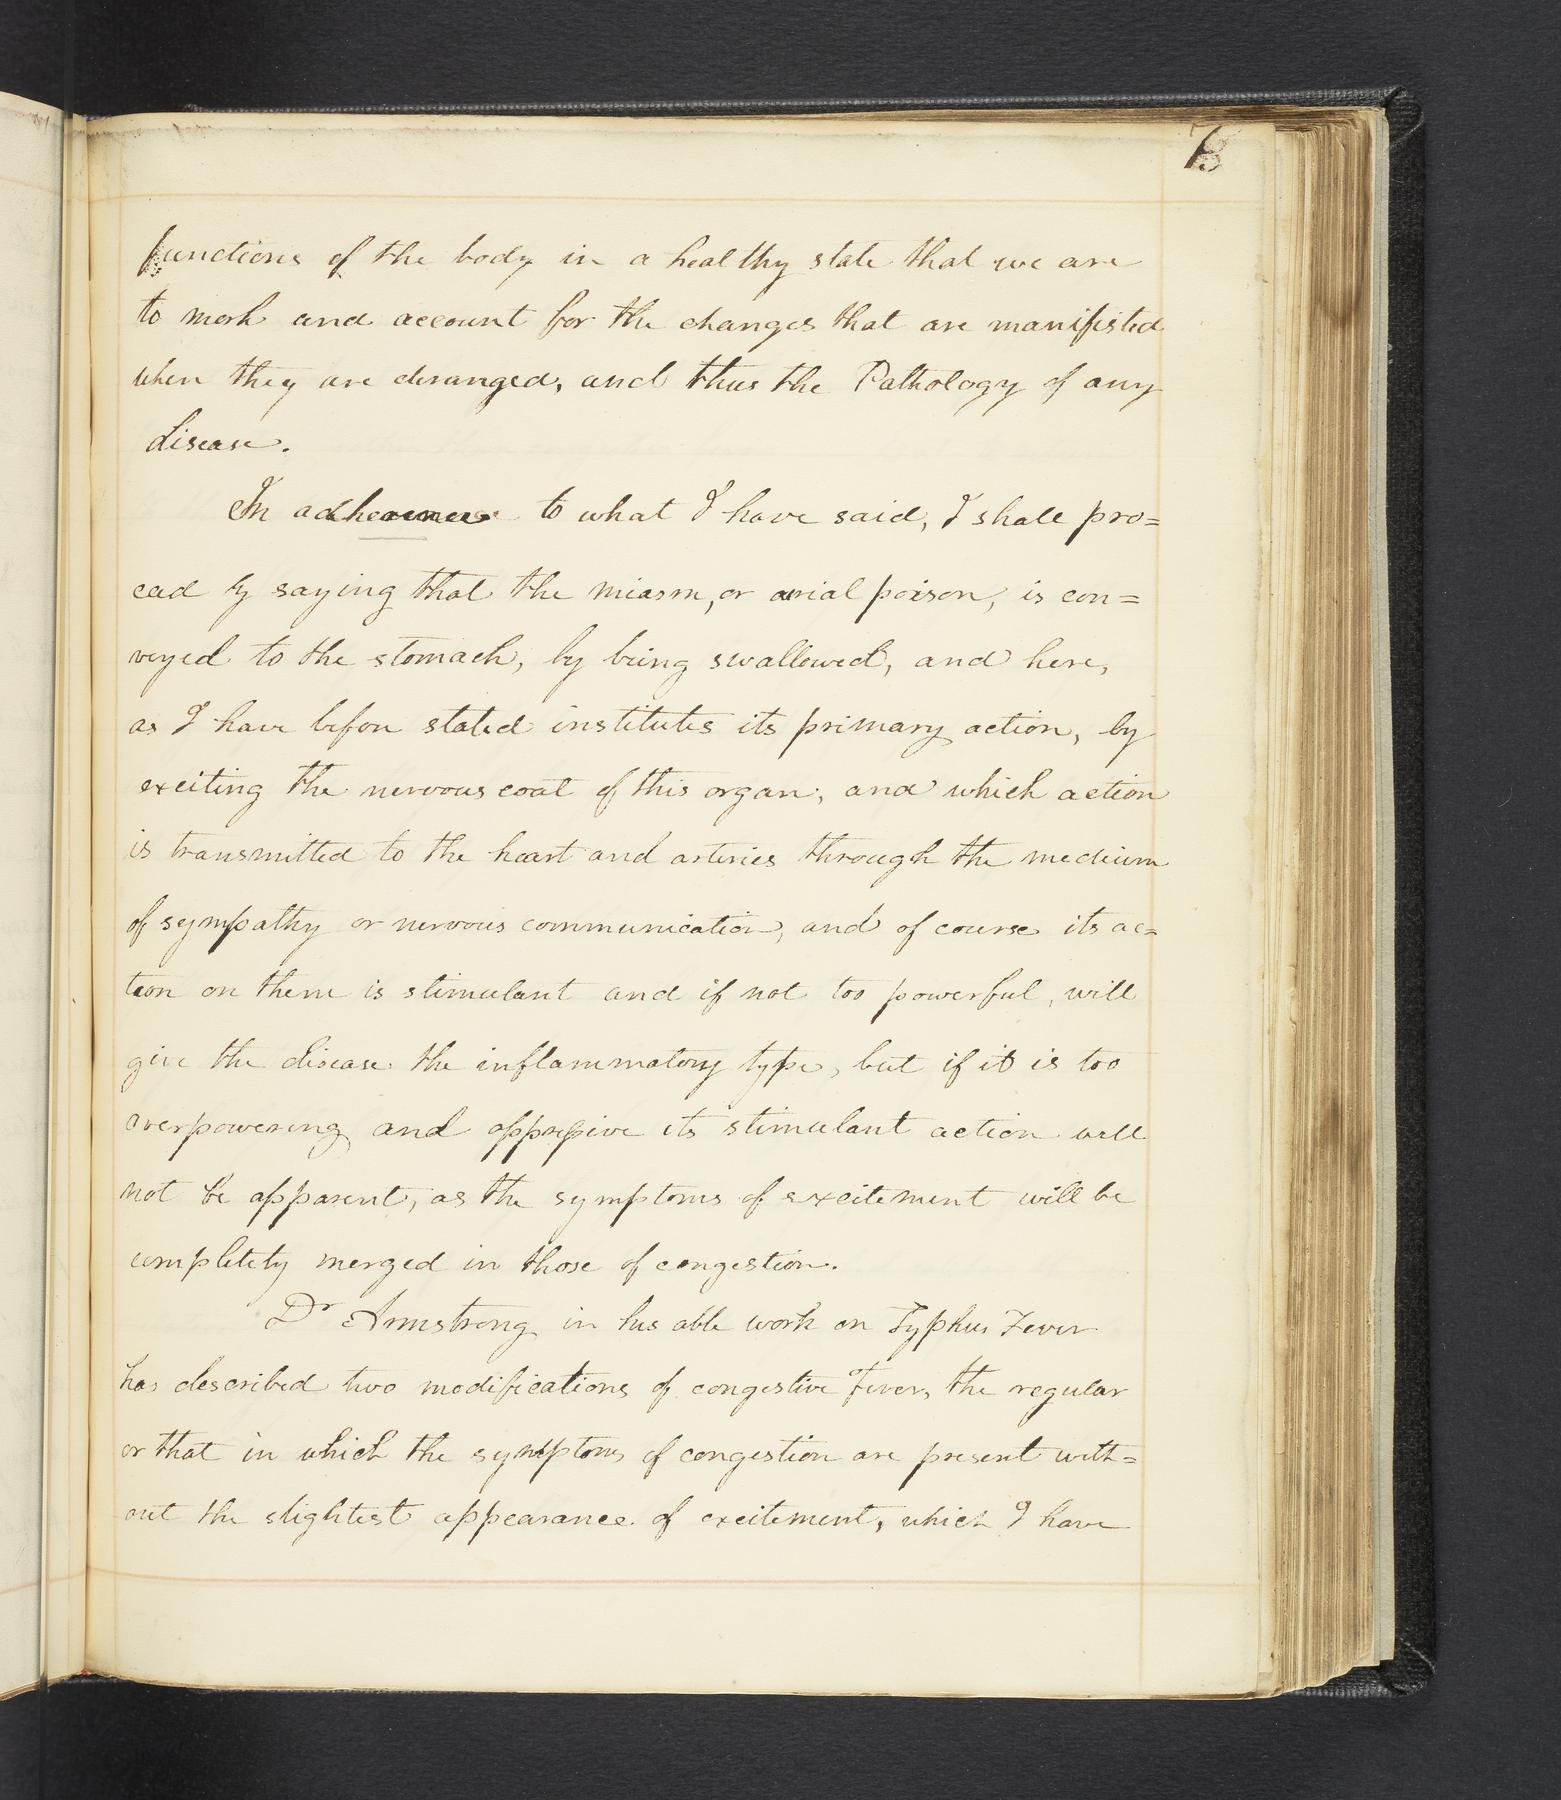 functions of the body in a healthy state that we are
to mark and account for the changes that are manifisted
when they are deranged, and thus the Pathology of any
disease.
In adherence to what I have said, I shall pro=
ceed by saying that the miasm, or aerial poison, is con=
veyed to the stomach, by being swallowed, and here,
as I have before stated institutes its primary action, by
exciting the nervous coat of this organ; and which action
is transmitted to the heart and arteries through the medium
of sympathy or nervous communication, and of course its ac=
tion on them is stimulant and if not too powerful, will
give the disease the inflammatory type, but if it is too
overpowering and oppressive its stimulant action will
not be apparent, as the symptoms of excitement will be
completely merged in those of congestion.
Dr Armstrong in his able work on Typhus Fever
has described two modifications of congestive Fever, the regular
or that in which the symptoms of congestion are present with=
out the slightest appearance of excitement, which I have